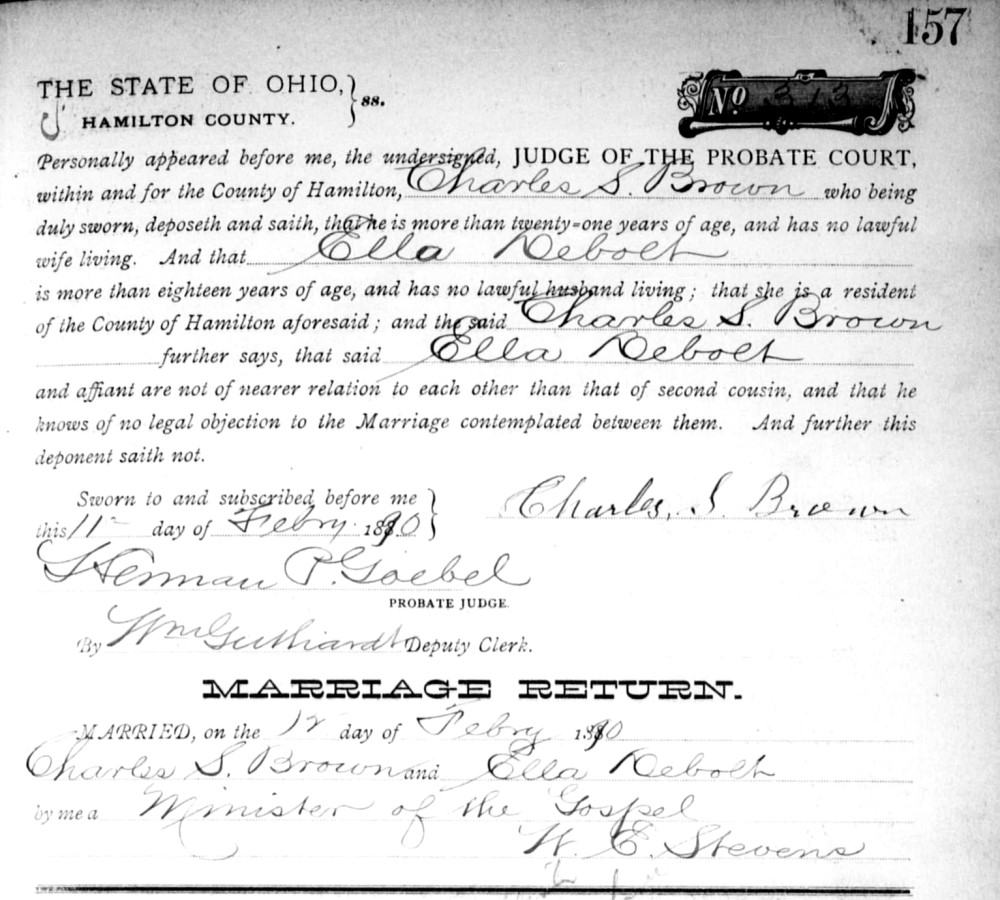 157
THE STATE OF OHIO, } ss.
Nº 313
HAMILTON COUNTY.
Personally appeared before me, the undersigned, JUDGE OF THE PROBATE COURT,
within and for the County of Hamilton, Charles S. Brown who being
duly sworn, deposeth and saith, that he is more than twenty-one years of age, and has no lawful
wife living. And that Ella Debolt
is more than eighteen years of age, and has no lawful husband living; that she is a resident
of the County of Hamilton aforesaid; and the said Charles S. Brown
further says, that said Ella Debolt
and affiant are not of nearer relation to each other than that of second cousin, and that he
knows of no legal objection to the Marriage contemplated between them. And further this
deponent saith not.
Sworn to and subscribed before me } Charles, S. Brown
this 11 day of Febry. 1890
Herman P. Goebel
PROBATE JUDGE.
By Wm Gutthardt Deputy Clerk.
MARRIAGE RETURN.
MARRIED, on the 12 day of Febry 1890
Charles S. Brown and Ella Debolt
by me a Minister of the Gospel
W. E. Stevens